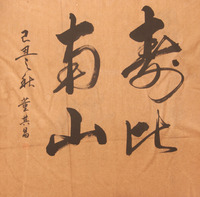 寿比
南山
己丑之秋 董其昌